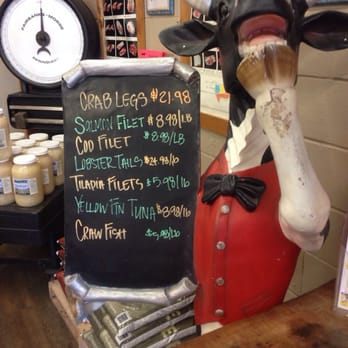 CRAB LEGS $21.98
SALMON FILET $8.98/LB
COD FILET $8.98/LB
LOBSTER TAILS $24.98/lb
TILAPIA FILETS $5.98/lb
YELLOW FIN TUNA $8.98/lb
CRAW FISH $5.98/LB